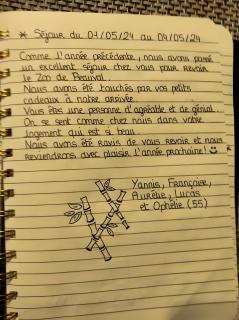 * Séjour du 01/05/24 au 04/05/24
Comme l'année précédente, nous avons passé
un excellent séjour chez vous pour revoir
le Zoo de Beauval.
Nous avons été touchés par vos petits
cadeaux à notre arrivée.
Vous êtes une personne d'agréable et de génial.
On se sent comme chez nous dans votre
logement qui est si beau.
Nous avons été ravis de vous revoir et nous
reviendrons avec plaisir l'année prochaine!
Yannis, Françoise,
Aurélie, Lucas
et Ophélie (55)